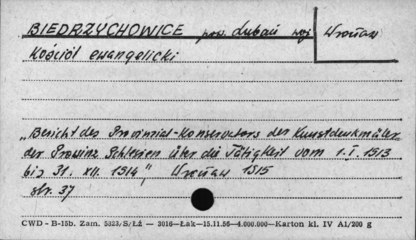 BIEDRZYCHOWICE pow. Lubań woj. Wrocław
Kościół ewangelicki
„Bericht des Provinzial-Konservators der Kunstdenkmäler
der Provinz Schlesien über die Tätigkeit vom 1.I.1913
bis 31. XII. 1914", Wrocław 1915
str. 37
CWD - B-15b. Zam. 5323/S/Łż — 3016—Łak—15.11.56—4.000.000—Karton kl. IV A1/200 g